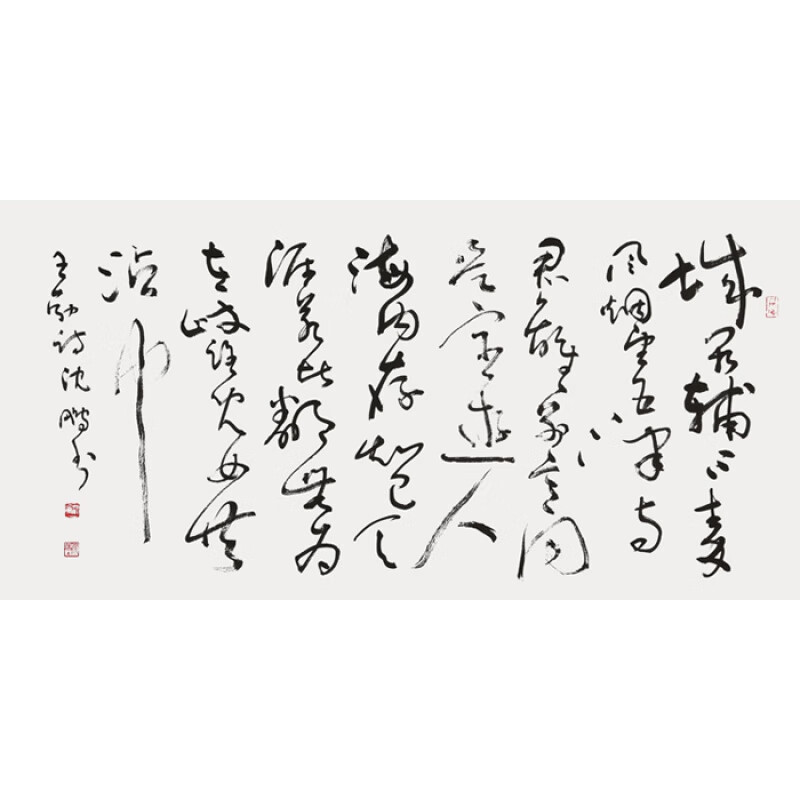 城阙辅三秦
风烟望五津与
君离别意同
是宦遊人
海内存知己天
涯若比邻无为
在歧路儿女共
沾巾
王勃诗沈鹏书